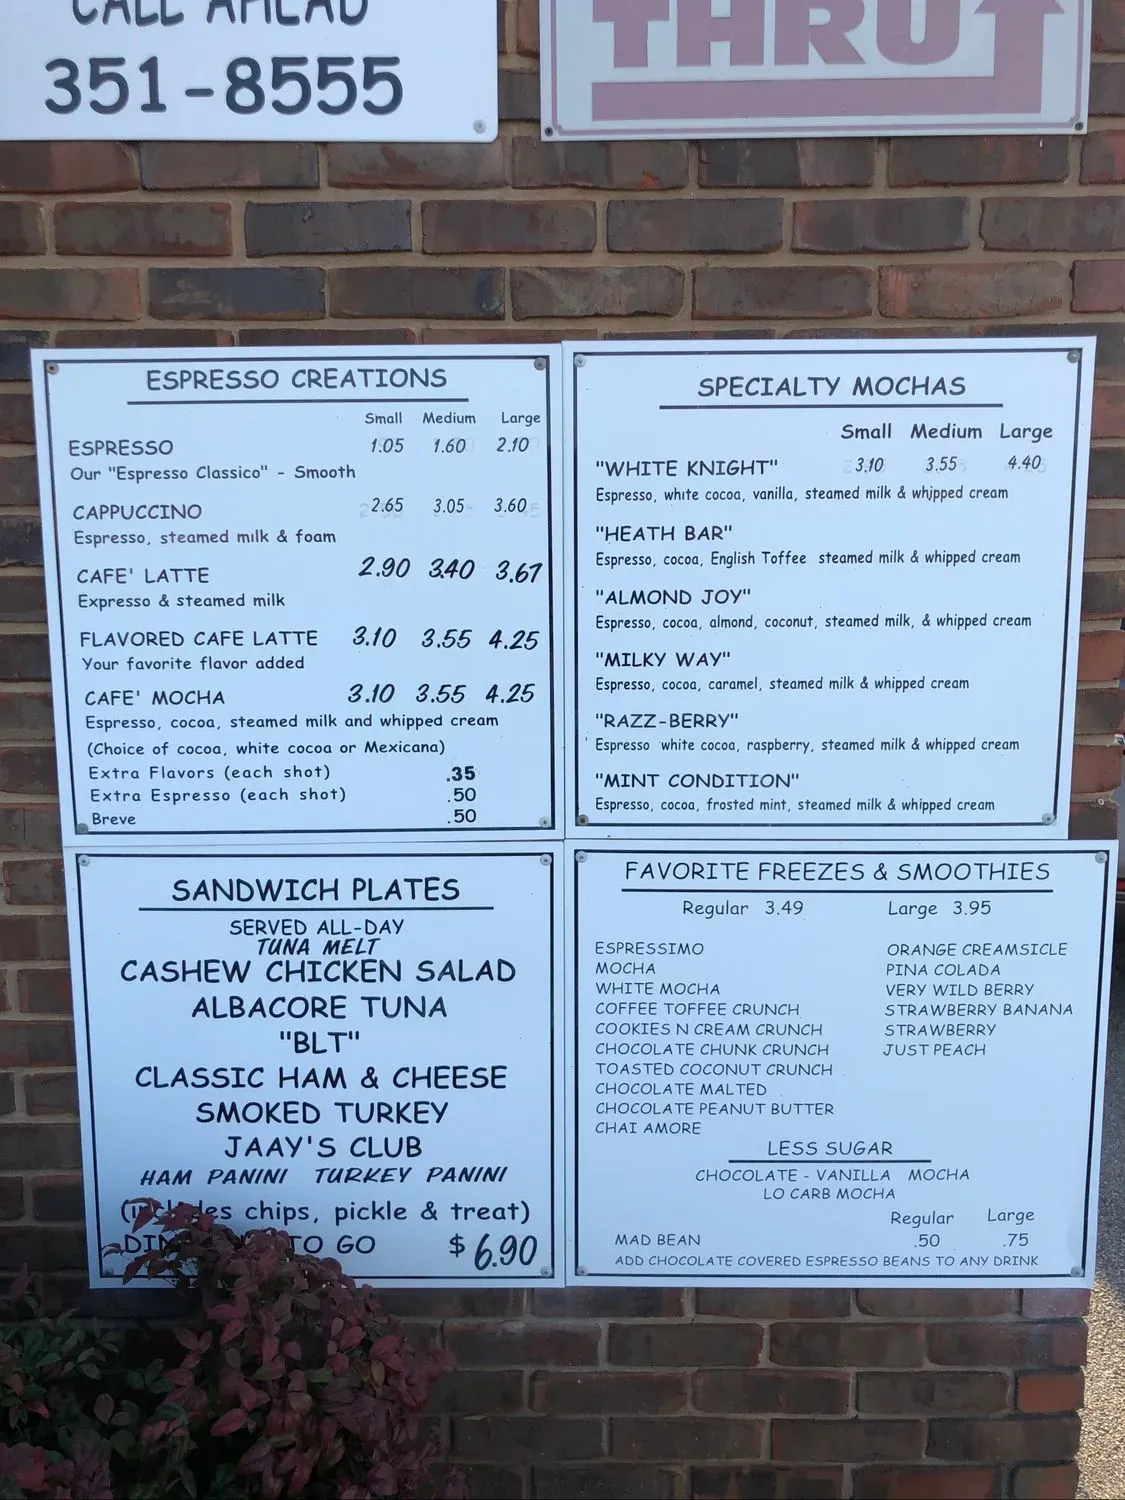 CALL AHEAD
351-8555
THRU
ESPRESSO CREATIONS
Small Medium Large
ESPRESSO 1.05 1.60 2.10
Our "Espresso Classico" - Smooth
CAPPUCCINO 2.65 3.05 3.60
Espresso, steamed milk & foam
CAFE' LATTE 2.90 3.40 3.67
Expresso & steamed milk
FLAVORED CAFE LATTE 3.10 3.55 4.25
Your favorite flavor added
CAFE' MOCHA 3.10 3.55 4.25
Espresso, cocoa, steamed milk and whipped cream
(Choice of cocoa, white cocoa or Mexicana)
Extra Flavors (each shot) .35
Extra Espresso (each shot) .50
Breve .50
SPECIALTY MOCHAS
Small Medium Large
"WHITE KNIGHT" 3.10 3.55 4.40
Espresso, white cocoa, vanilla, steamed milk & whipped cream
"HEATH BAR"
Espresso, cocoa, English Toffee steamed milk & whipped cream
"ALMOND JOY"
Espresso, cocoa, almond, coconut, steamed milk, & whipped cream
"MILKY WAY"
Espresso, cocoa, caramel, steamed milk & whipped cream
"RAZZ-BERRY"
Espresso white cocoa, raspberry, steamed milk & whipped cream
"MINT CONDITION"
Espresso, cocoa, frosted mint, steamed milk & whipped cream
SANDWICH PLATES
SERVED ALL-DAY
TUNA MELT
CASHEW CHICKEN SALAD
ALBACORE TUNA
"BLT"
CLASSIC HAM & CHEESE
SMOKED TURKEY
JAAY'S CLUB
HAM PANINI TURKEY PANINI
(includes chips, pickle & treat)
TO GO $6.90
FAVORITE FREEZES & SMOOTHIES
Regular 3.49 Large 3.95
ESPRESSIMO
MOCHA
WHITE MOCHA
COFFEE TOFFEE CRUNCH
COOKIES N CREAM CRUNCH
CHOCOLATE CHUNK CRUNCH
TOASTED COCONUT CRUNCH
CHOCOLATE MALTED
CHOCOLATE PEANUT BUTTER
CHAI AMORE
ORANGE CREAMSICLE
PINA COLADA
VERY WILD BERRY
STRAWBERRY BANANA
STRAWBERRY
JUST PEACH
LESS SUGAR
CHOCOLATE - VANILLA MOCHA
LO CARB MOCHA
Regular Large
MAD BEAN .50 .75
ADD CHOCOLATE COVERED ESPRESSO BEANS TO ANY DRINK